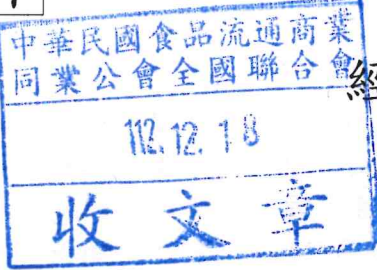 中華民國食品流通商業
同業公會全國聯合會
經
112.12.18
收文章